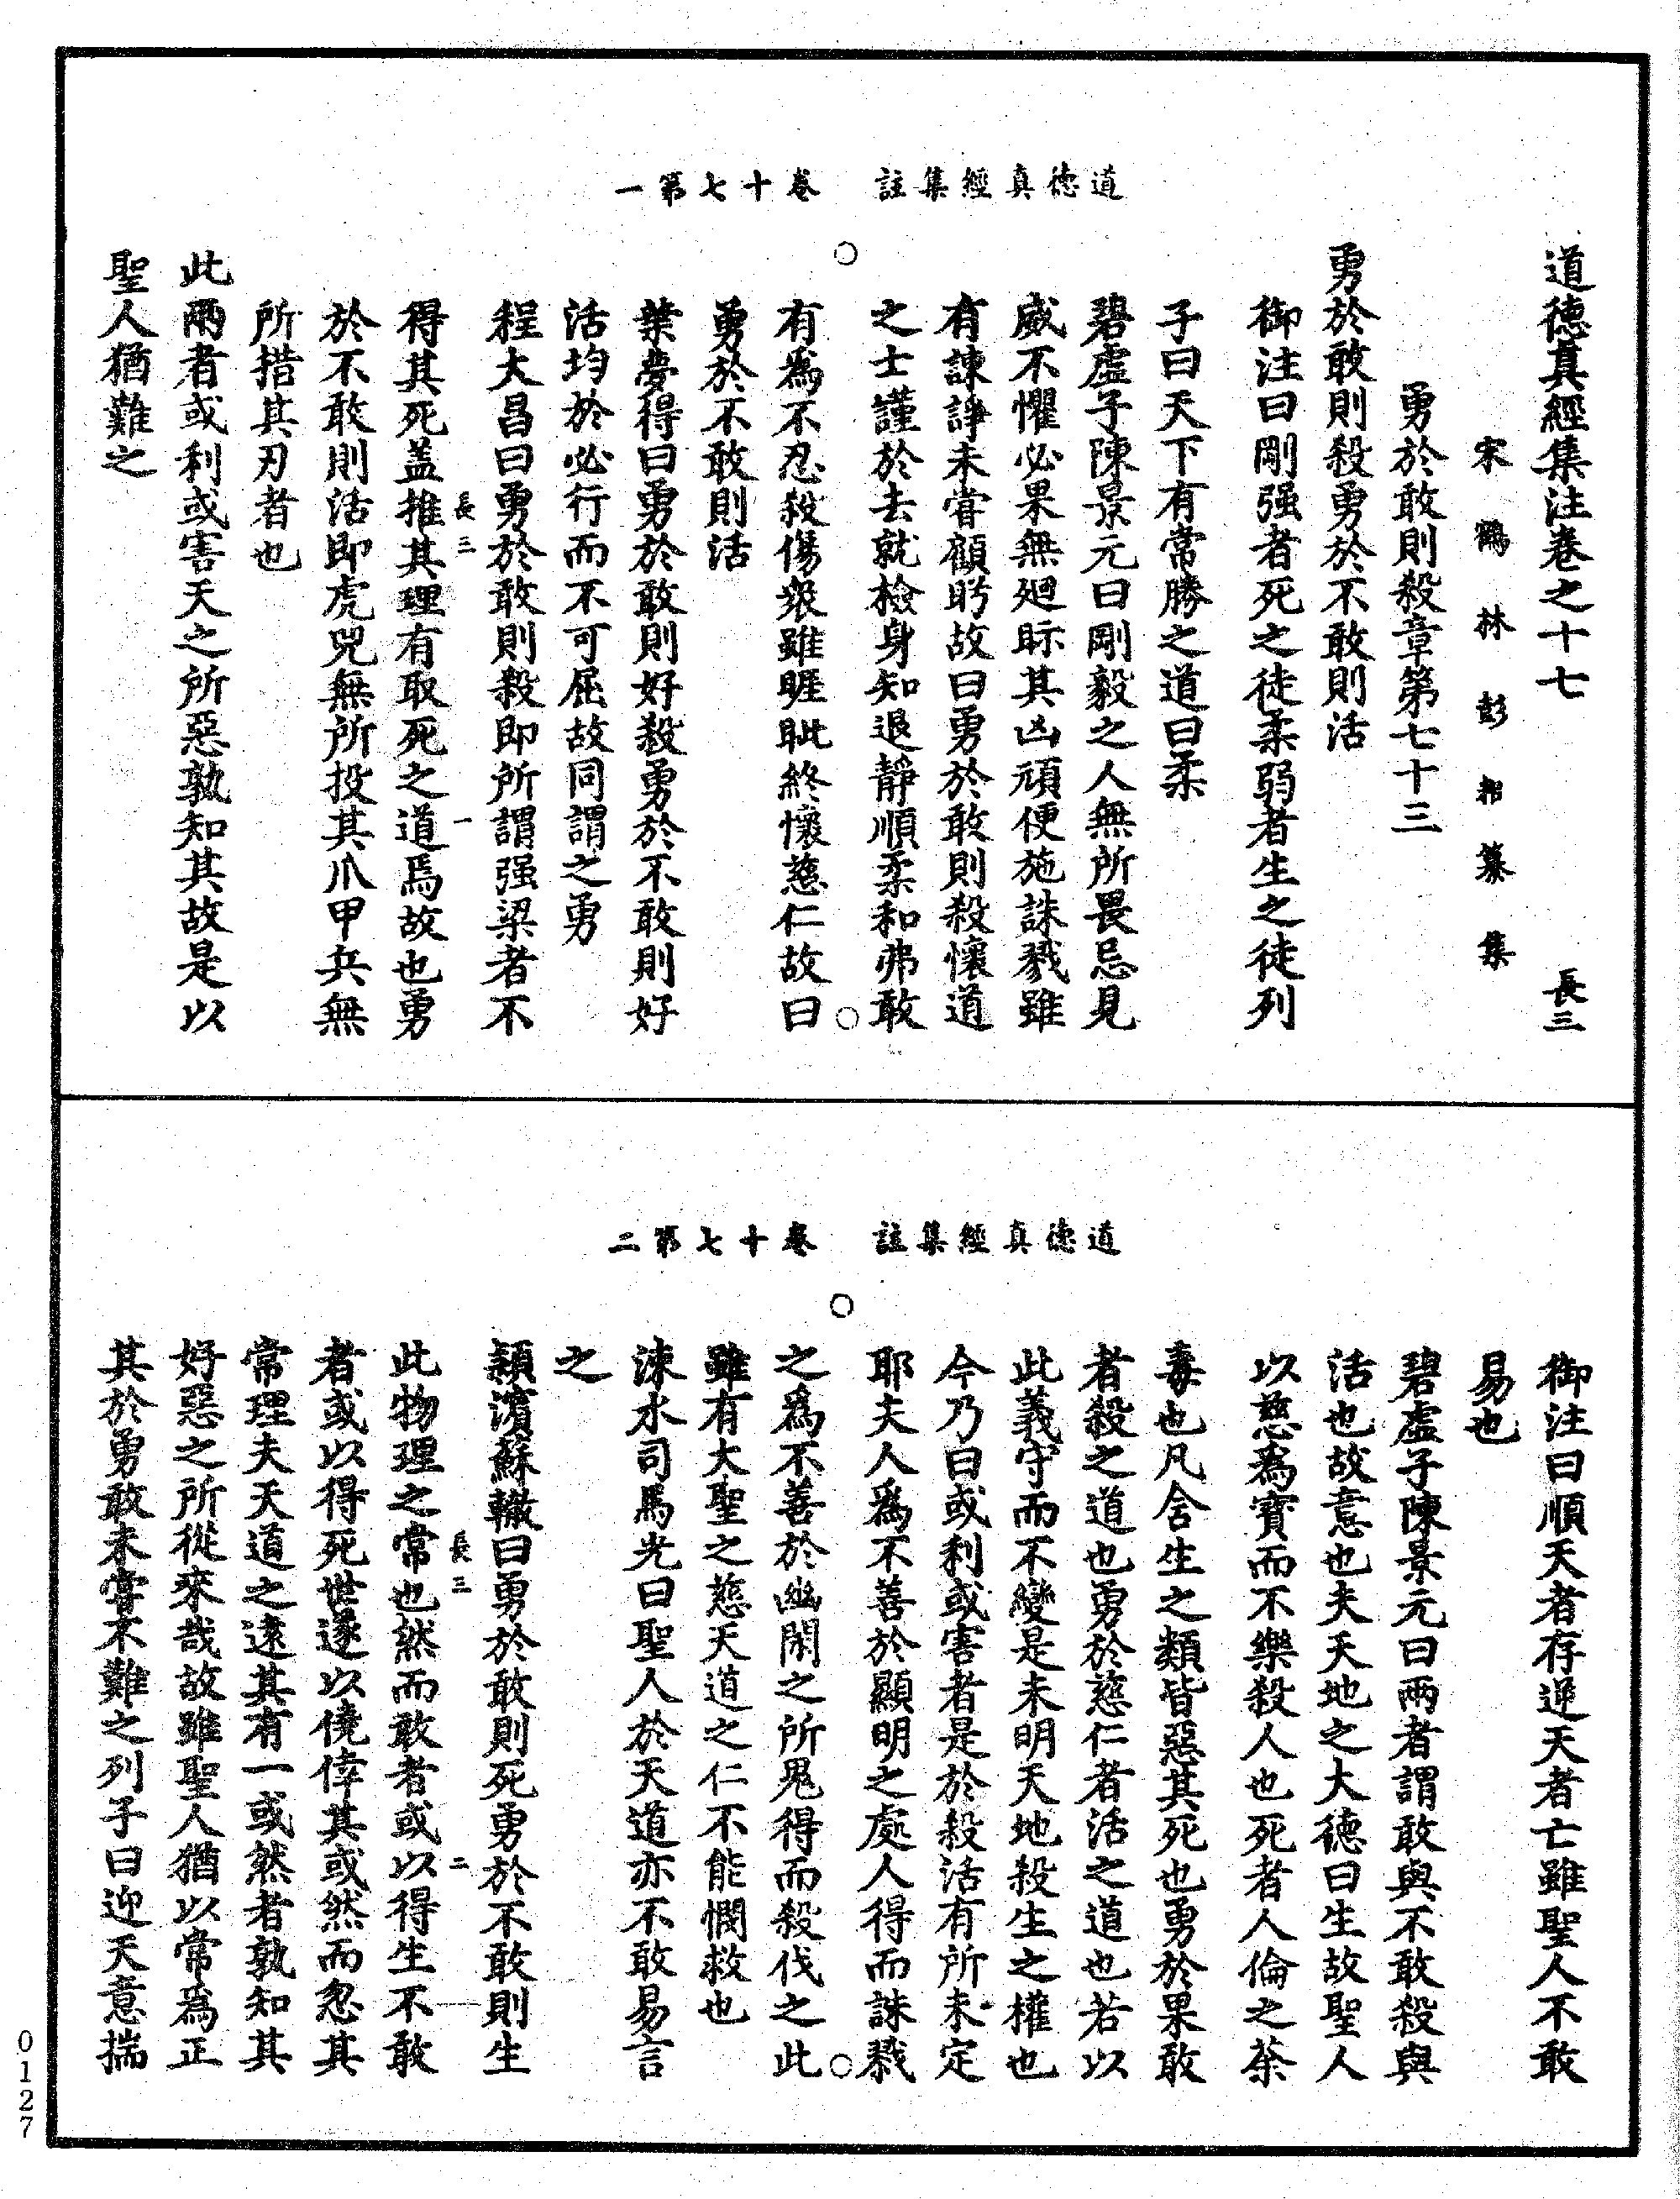 道德真經集註　卷十七第一
道德真經集注卷之十七　長三
宋鶴林彭耜纂集
勇於敢則殺章第七十三
勇於敢則殺勇於不敢則活
御注曰剛强者死之徒柔弱者生之徒列
子曰天下有常勝之道曰柔
碧虛子陳景元曰剛毅之人無所畏忌見
威不懼必果無廻眎其凶頑便施誅戮雖
有諫諍未甞顧眄故曰勇於敢則殺懷道
之士謹於去就檢身知退靜順柔和弗敢
有爲不忍殺傷衆雖睚眦終懷慈仁故曰
勇於不敢則活
葉夢得曰勇於敢則好殺勇於不敢則好
活均於必行而不可屈故同謂之勇
程大昌曰勇於敢則殺即所謂强梁者不
長三　一
得其死盖推其理有取死之道焉故也勇
於不敢則活即虎兕無所投其爪甲兵無
所措其刃者也
此兩者或利或害天之所惡孰知其故是以
聖人猶難之
道德真經集註　卷十七第二
御注曰順天者存逆天者亡雖聖人不敢
易也
碧虛子陳景元曰兩者謂敢與不敢殺與
活也故意也夫天地之大德曰生故聖人
以慈爲寶而不樂殺人也死者人倫之荼
毒也凡含生之類皆惡其死也勇於果敢
者殺之道也勇於慈仁者活之道也若以
此義守而不變是未明天地殺生之權也
今乃曰或利或害者是於殺活有所未定
耶夫人爲不善於顯明之處人得而誅戮
之爲不善於幽閑之所鬼得而殺伐之此
雖有大聖之慈天道之仁不能憫救也
涑水司馬光曰聖人於天道亦不敢易言
之
潁濱蘇轍曰勇於敢則死勇於不敢則生
長三　二
此物理之常也然而敢者或以得生不敢
者或以得死世遂以僥倖其或然而忽其
常理夫天道之遠其有一或然者孰知其
好惡之所從來哉故雖聖人猶以常爲正
其於勇敢未甞不難之列子曰迎天意揣
0127